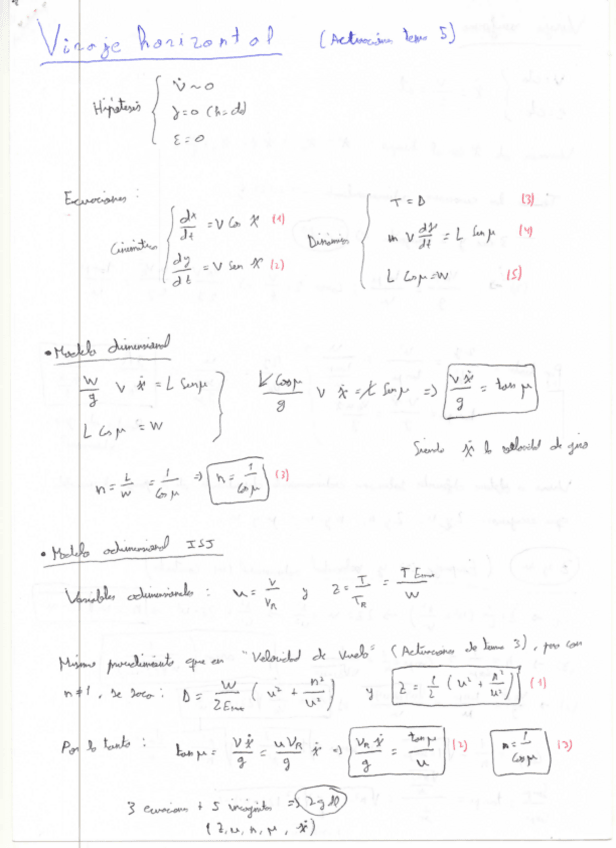 Viraje horizontal (Actuaciones tema 5)
Hipótesis { V̇ ~ 0
γ = 0 (h = cte)
ε = 0
Ecuaciones:
Cinemáticas { dx/dt = V Cos χ (1)
dy/dt = V Sen χ (2)
Dinámicas { T = D (3)
m V dχ/dt = L Sen μ (4)
L Cos μ = W (5)
• Modelo dimensional
W/g V χ̇ = L Sen μ
L Cos μ = W
L Cos μ/g V χ̇ = L Sen μ => V χ̇/g = tan μ
Siendo χ̇ la velocidad de giro
n = L/W = 1/Cos μ => n = 1/Cos μ (3)
• Modelo adimensional ISJ
Variables adimensionales: u = V/V_R y Z = T/T_R = T E_max/W
Mismo procedimiento que en "Velocidad de Vuelo" (Actuaciones de tema 3), pero con
n ≠ 1, se saca: D = W/2E_max (u² + n²/u²) y Z = 1/2 (u² + n²/u²) (1)
Por lo tanto: tan μ = V χ̇/g = u V_R/g χ̇ => V_R χ̇/g = tan μ/u (2) n = 1/Cos μ (3)
3 ecuaciones + 5 incógnitas => 2 gdl
(Z, u, n, μ, χ̇)